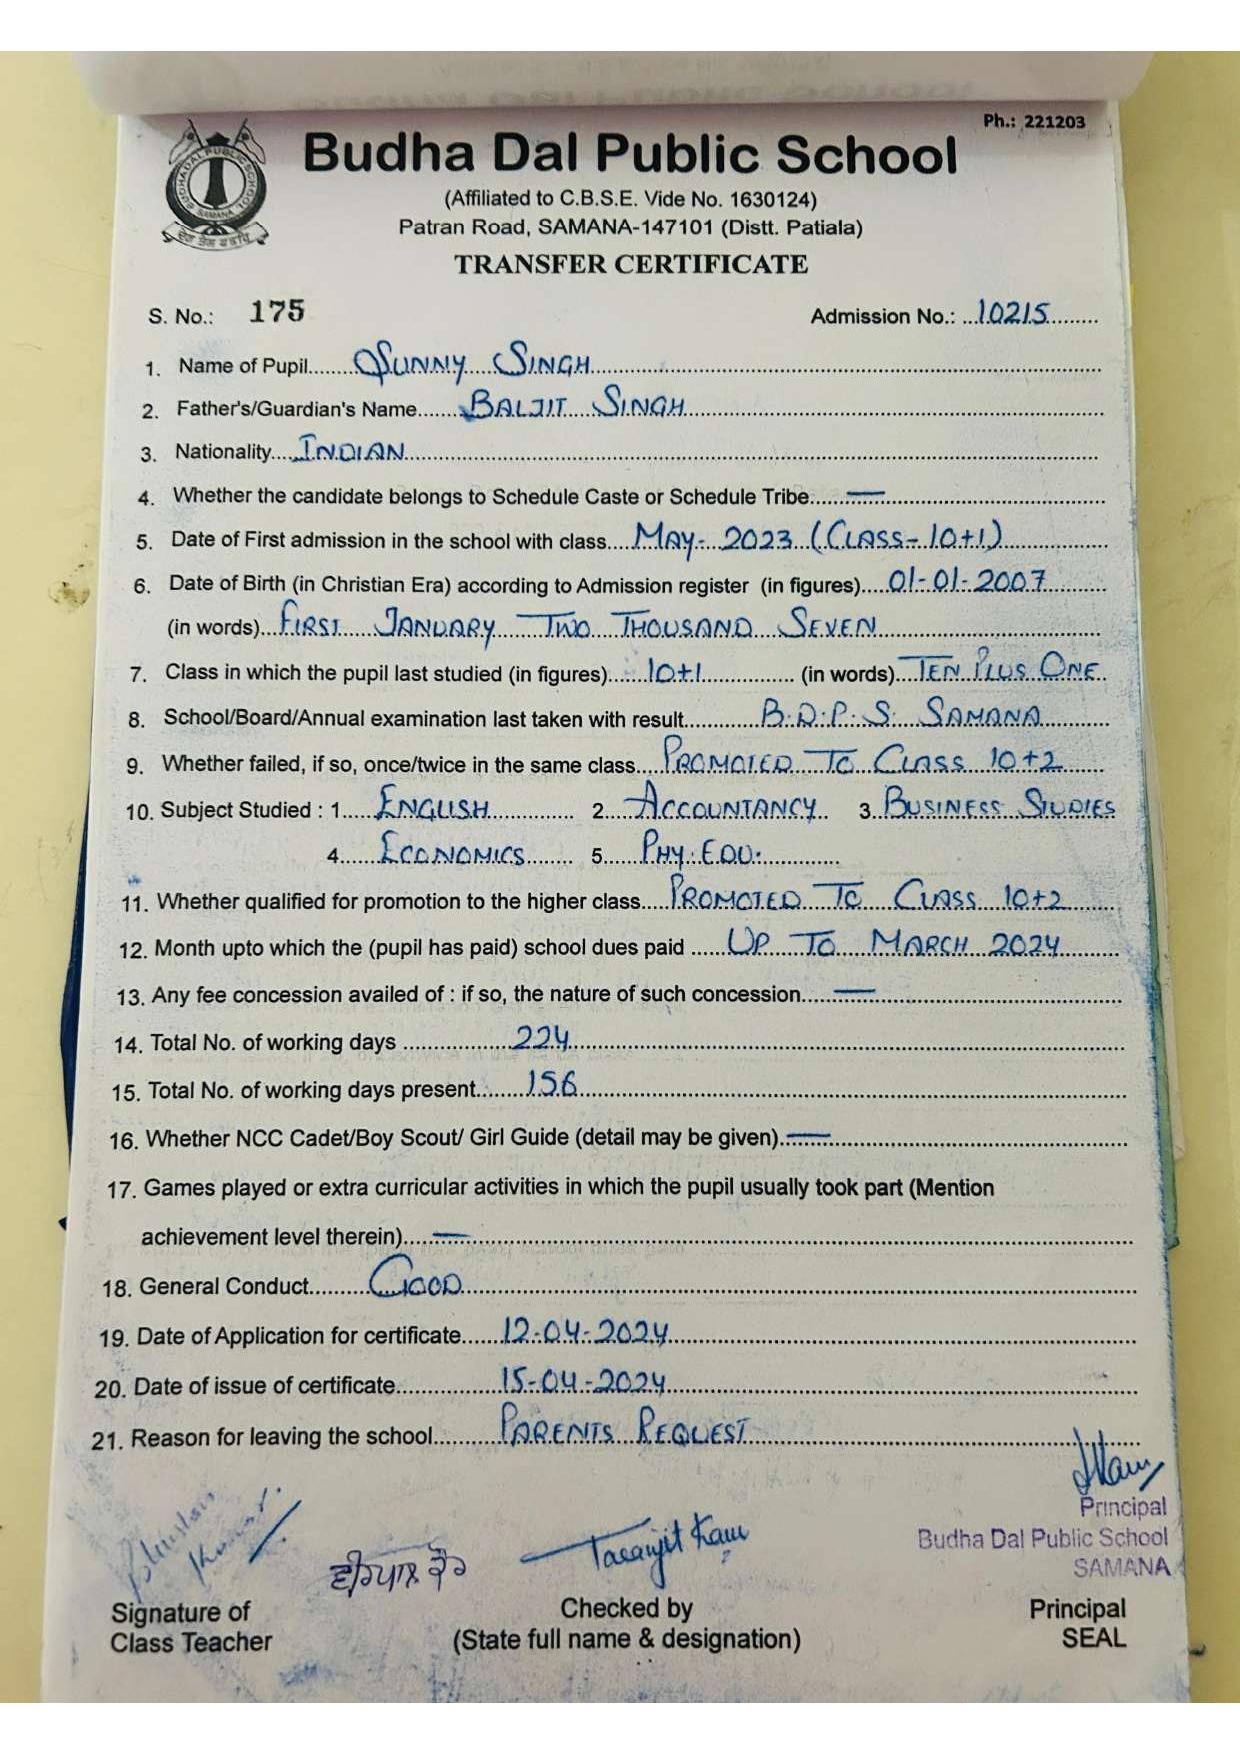 Ph.: 221203
Budha Dal Public School
(Affiliated to C.B.S.E. Vide No. 1630124)
Patran Road, SAMANA-147101 (Distt. Patiala)
TRANSFER CERTIFICATE
S. No.: 175 Admission No.: 10215
1. Name of Pupil SUNNY SINGH
2. Father's/Guardian's Name BALJIT SINGH
3. Nationality INDIAN
4. Whether the candidate belongs to Schedule Caste or Schedule Tribe —
5. Date of First admission in the school with class MAY- 2023 (CLASS- 10+1)
6. Date of Birth (in Christian Era) according to Admission register (in figures) 01-01-2007
(in words) FIRST JANUARY TWO THOUSAND SEVEN
7. Class in which the pupil last studied (in figures) 10+1 (in words) TEN PLUS ONE
8. School/Board/Annual examination last taken with result B.D.P.S. SAMANA
9. Whether failed, if so, once/twice in the same class PROMOTED TO CLASS 10+2
10. Subject Studied : 1. ENGLISH 2. ACCOUNTANCY 3. BUSINESS STUDIES
4. ECONOMICS 5. PHY. EDU.
11. Whether qualified for promotion to the higher class PROMOTED TO CLASS 10+2
12. Month upto which the (pupil has paid) school dues paid UP TO MARCH 2024
13. Any fee concession availed of : if so, the nature of such concession —
14. Total No. of working days 224
15. Total No. of working days present 156
16. Whether NCC Cadet/Boy Scout/ Girl Guide (detail may be given) —
17. Games played or extra curricular activities in which the pupil usually took part (Mention
achievement level therein) —
18. General Conduct GOOD
19. Date of Application for certificate 12-04-2024
20. Date of issue of certificate 15-04-2024
21. Reason for leaving the school PARENTS REQUEST
Principal
Budha Dal Public School
SAMANA
Taranjit Kaur
Signature of
Class Teacher
Checked by
(State full name & designation)
Principal
SEAL